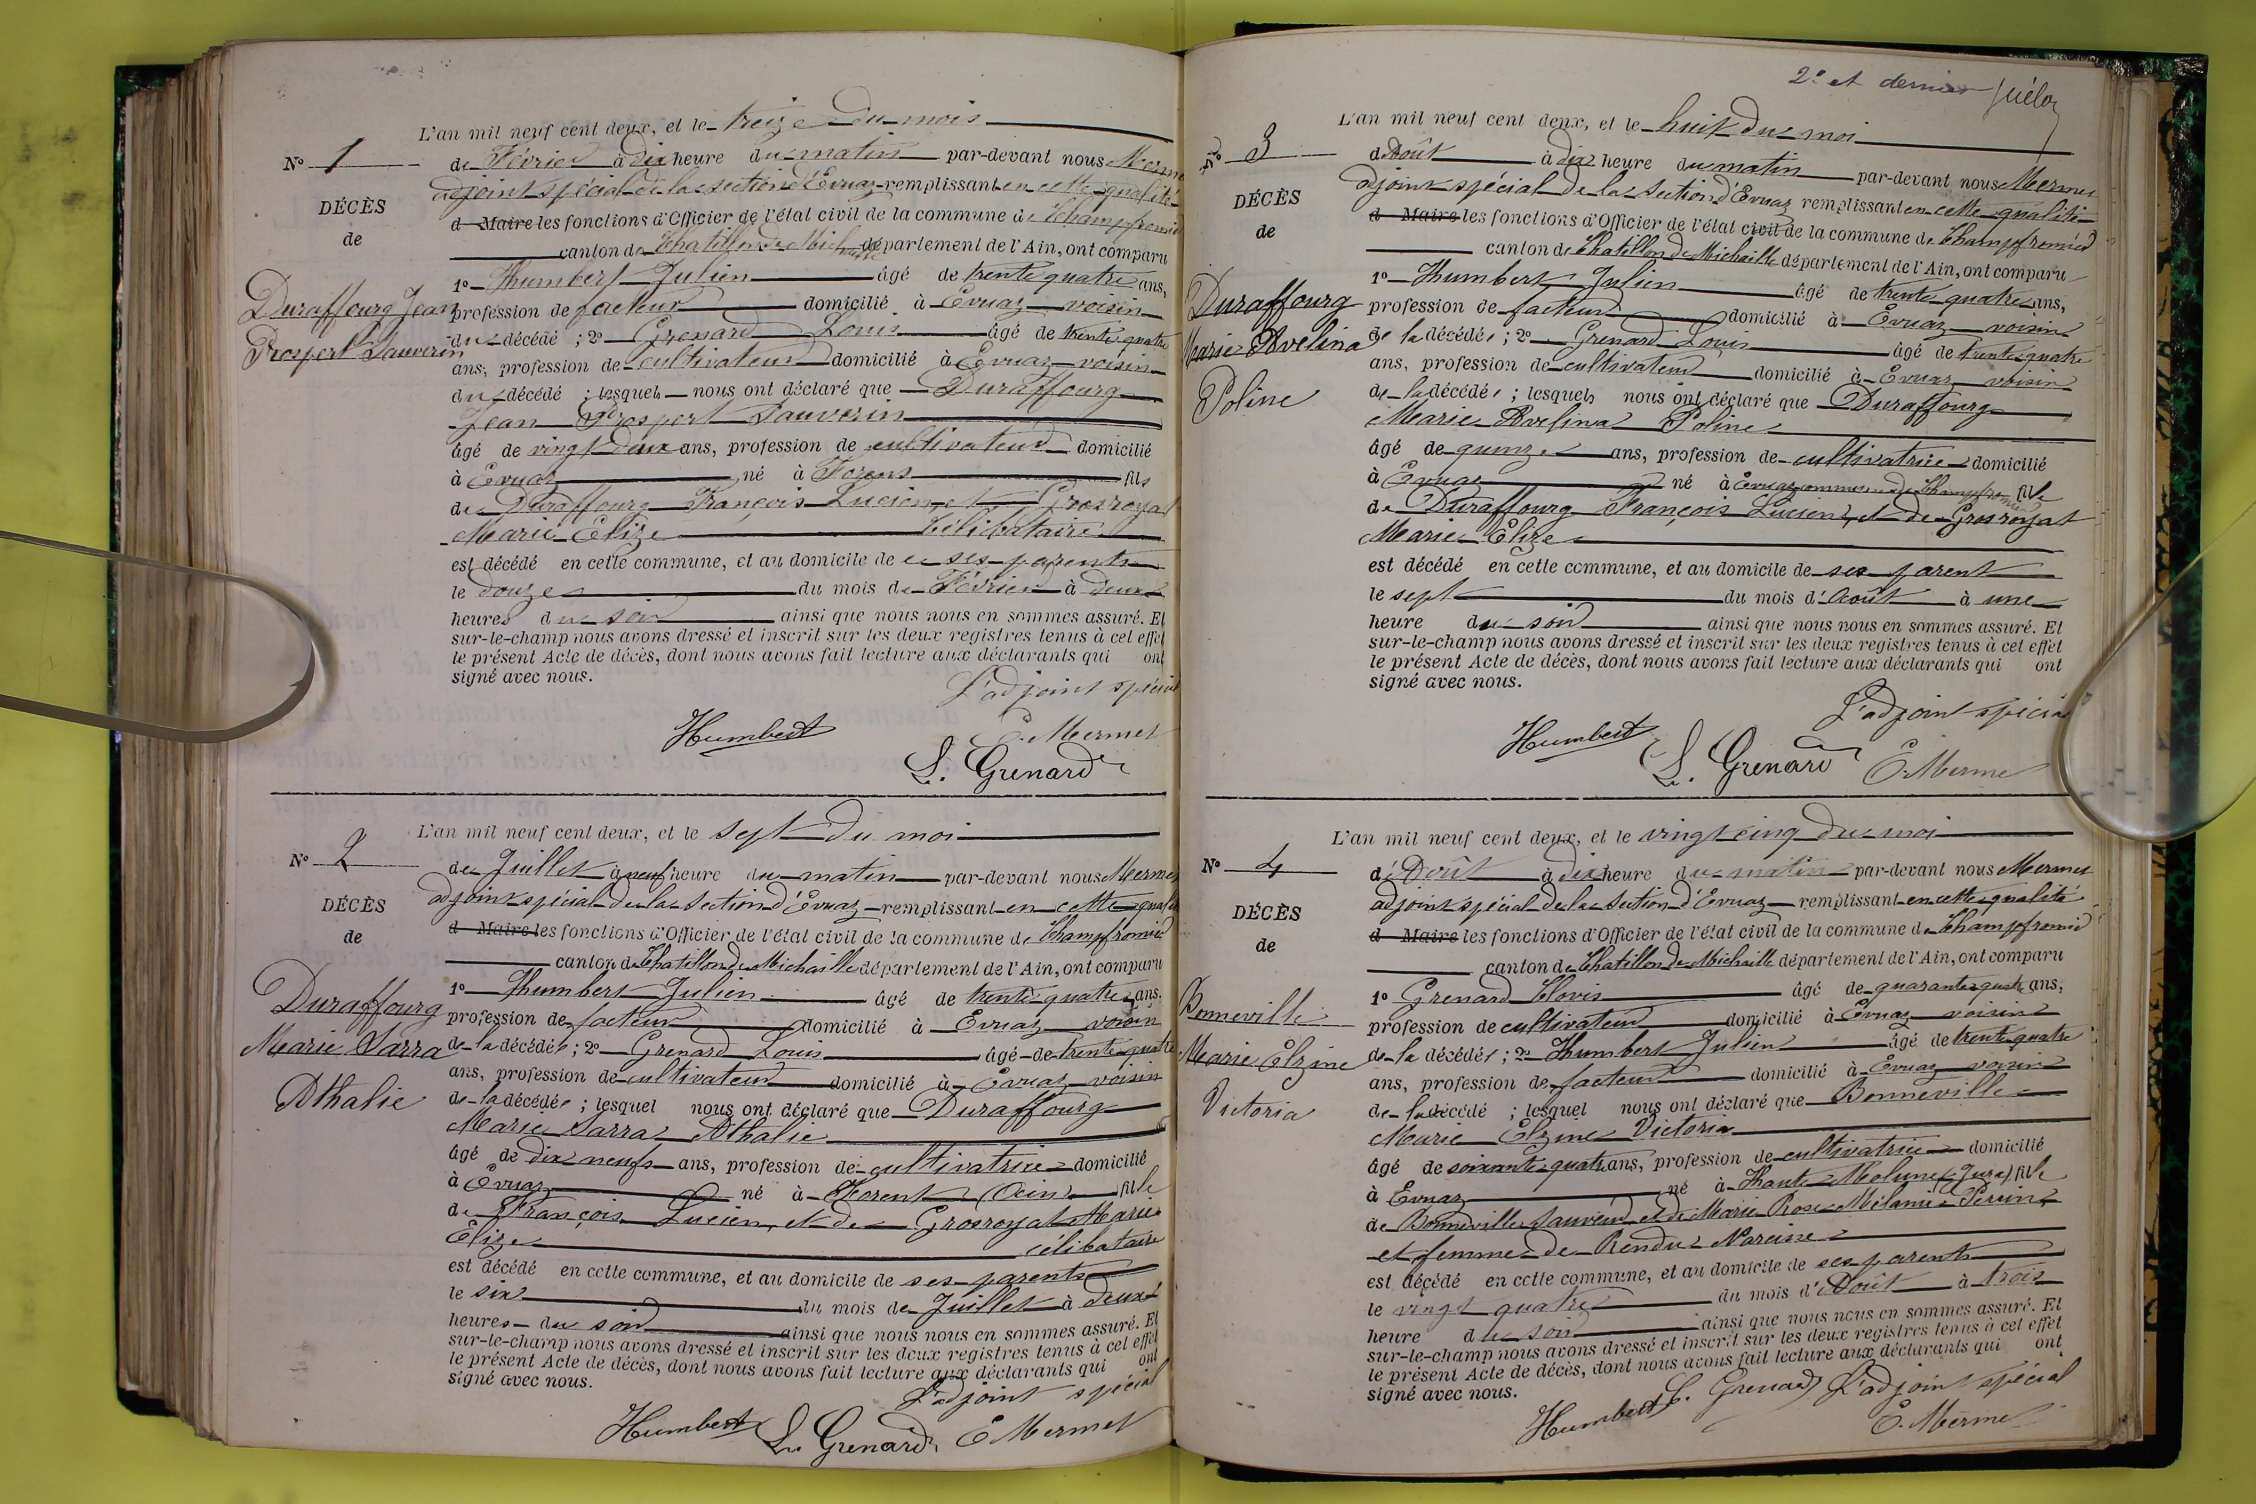 L'an mil neuf cent deux, et le treize du mois
N° 1
de Février à dix heure du matin par-devant nous Mermet
adjoint spécial de la section d'Evuaz remplissant en cette qualité
d Maire les fonctions d'Officier de l'état civil de la commune de Champfromier
DÉCÈS
de
canton de Chatillon de Michaille département de l'Ain, ont comparu
1° Humbert Julien âgé de trente quatre ans,
Duraffourg Jean
Prospert Sauverin
profession de facteur domicilié à Evuaz voisin
du décédé ; 2° Grenard Louis âgé de trente quatre
ans, profession de cultivateur domicilié à Evuaz voisin
du décédé ; lesquels nous ont déclaré que Duraffourg
Jean Prospert Sauverin
âgé de vingt deux ans, profession de cultivateur domicilié
à Evuaz né à Forens fils
de Duraffourg François Lucien et Grosroyat
Marie Elize Célibataire
est décédé en cette commune, et au domicile de ses parents
le douze du mois de Février à deux
heures du soir ainsi que nous nous en sommes assuré. Et
sur-le-champ nous avons dressé et inscrit sur les deux registres tenus à cet effet
le présent Acte de décès, dont nous avons fait lecture aux déclarants qui ont
signé avec nous.
L'adjoint spécial
Humbert
E. Mermet
L. Grenard
L'an mil neuf cent deux, et le sept du moi
N° 2
de Juillet à neuf heure du matin par-devant nous Mermet
adjoint spécial de la section d'Evuaz remplissant en cette qualité
DÉCÈS
de
d Maire les fonctions d'Officier de l'état civil de la commune de Champfromier
canton de Chatillon de Michaille département de l'Ain, ont comparu
1° Humbert Julien âgé de trente quatre ans,
Duraffourg
Marie Sarra
Athalie
profession de facteur domicilié à Evuaz voisin
de la décédée ; 2° Grenard Louis âgé de trente quatre
ans, profession de cultivateur domicilié à Evuaz voisin
de la décédée ; lesquel nous ont déclaré que Duraffourg
Marie Sarra Athalie
âgé de dix neufs ans, profession de cultivatrice domicilié
à Evuaz né à Horent (Ain) fille
de François Lucien, et de Grosroyat Marie
Elize célibataire
est décédé en cette commune, et au domicile de ses parents
le six du mois de Juillet à deux
heures du soir ainsi que nous nous en sommes assuré. Et
sur-le-champ nous avons dressé et inscrit sur les deux registres tenus à cet effet
le présent Acte de décès, dont nous avons fait lecture aux déclarants qui ont
signé avec nous.
L'adjoint spécial
Humbert L. Grenard E. Mermet
2e et dernier
L'an mil neuf cent deux, et le huit du moi
N° 3
d'Août à dix heure du matin par-devant nous Mermet
adjoint spécial de la section d'Evuaz remplissant en cette qualité
DÉCÈS
de
d Maire les fonctions d'Officier de l'état civil de la commune de Champfromier
canton de Chatillon de Michaille département de l'Ain, ont comparu
1° Humbert Julien âgé de trente quatre ans,
Duraffourg
Marie Avelina
Poline
profession de facteur domicilié à Evuaz voisin
de la décédée ; 2° Grenard Louis âgé de trente quatre
ans, profession de cultivateur domicilié à Evuaz voisin
de la décédée ; lesquels nous ont déclaré que Duraffourg
Marie Avelina Poline
âgé de quinze ans, profession de cultivatrice domicilié
à Evuaz né à Evuaz commune de Champfromier fille
de Duraffourg François Lucien, et de Grosroyat
Marie Elize
est décédé en cette commune, et au domicile de ses parent
le sept du mois d'Août à une
heure du soir ainsi que nous nous en sommes assuré. Et
sur-le-champ nous avons dressé et inscrit sur les deux registres tenus à cet effet
le présent Acte de décès, dont nous avons fait lecture aux déclarants qui ont
signé avec nous.
L'adjoint spécial
Humbert L. Grenard E. Mermet
L'an mil neuf cent deux, et le vingt cinq du moi
N° 4
d'Août à dix heure du matin par-devant nous Mermet
adjoint spécial de la section d'Evuaz remplissant en cette qualité
DÉCÈS
de
d Maire les fonctions d'Officier de l'état civil de la commune de Champfromier
canton de Chatillon de Michaille département de l'Ain, ont comparu
1° Grenard Clovis âgé de quarante quatre ans,
Bonneville
Marie Elzine
Victoria
profession de cultivateur domicilié à Evuaz voisin
de la décédée ; 2° Humbert Julien âgé de trente quatre
ans, profession de facteur domicilié à Evuaz voisin
de la décédé ; lesquel nous ont déclaré que Bonneville
Marie Elzine Victoria
âgé de soixante quatre ans, profession de cultivatrice domicilié
à Evuaz né à Haute Molune (Jura) fille
de Bonneville Sauveur et de Marie Rose Mélanie Perrin
et femme de Rendu Narcisse
est décédé en cette commune, et au domicile de ses parents
le vingt quatre du mois d'Août à trois
heure du soir ainsi que nous nous en sommes assuré. Et
sur-le-champ nous avons dressé et inscrit sur les deux registres tenus à cet effet
le présent Acte de décès, dont nous avons fait lecture aux déclarants qui ont
signé avec nous.
Humbert C. Grenard L'adjoint spécial
E. Mermet